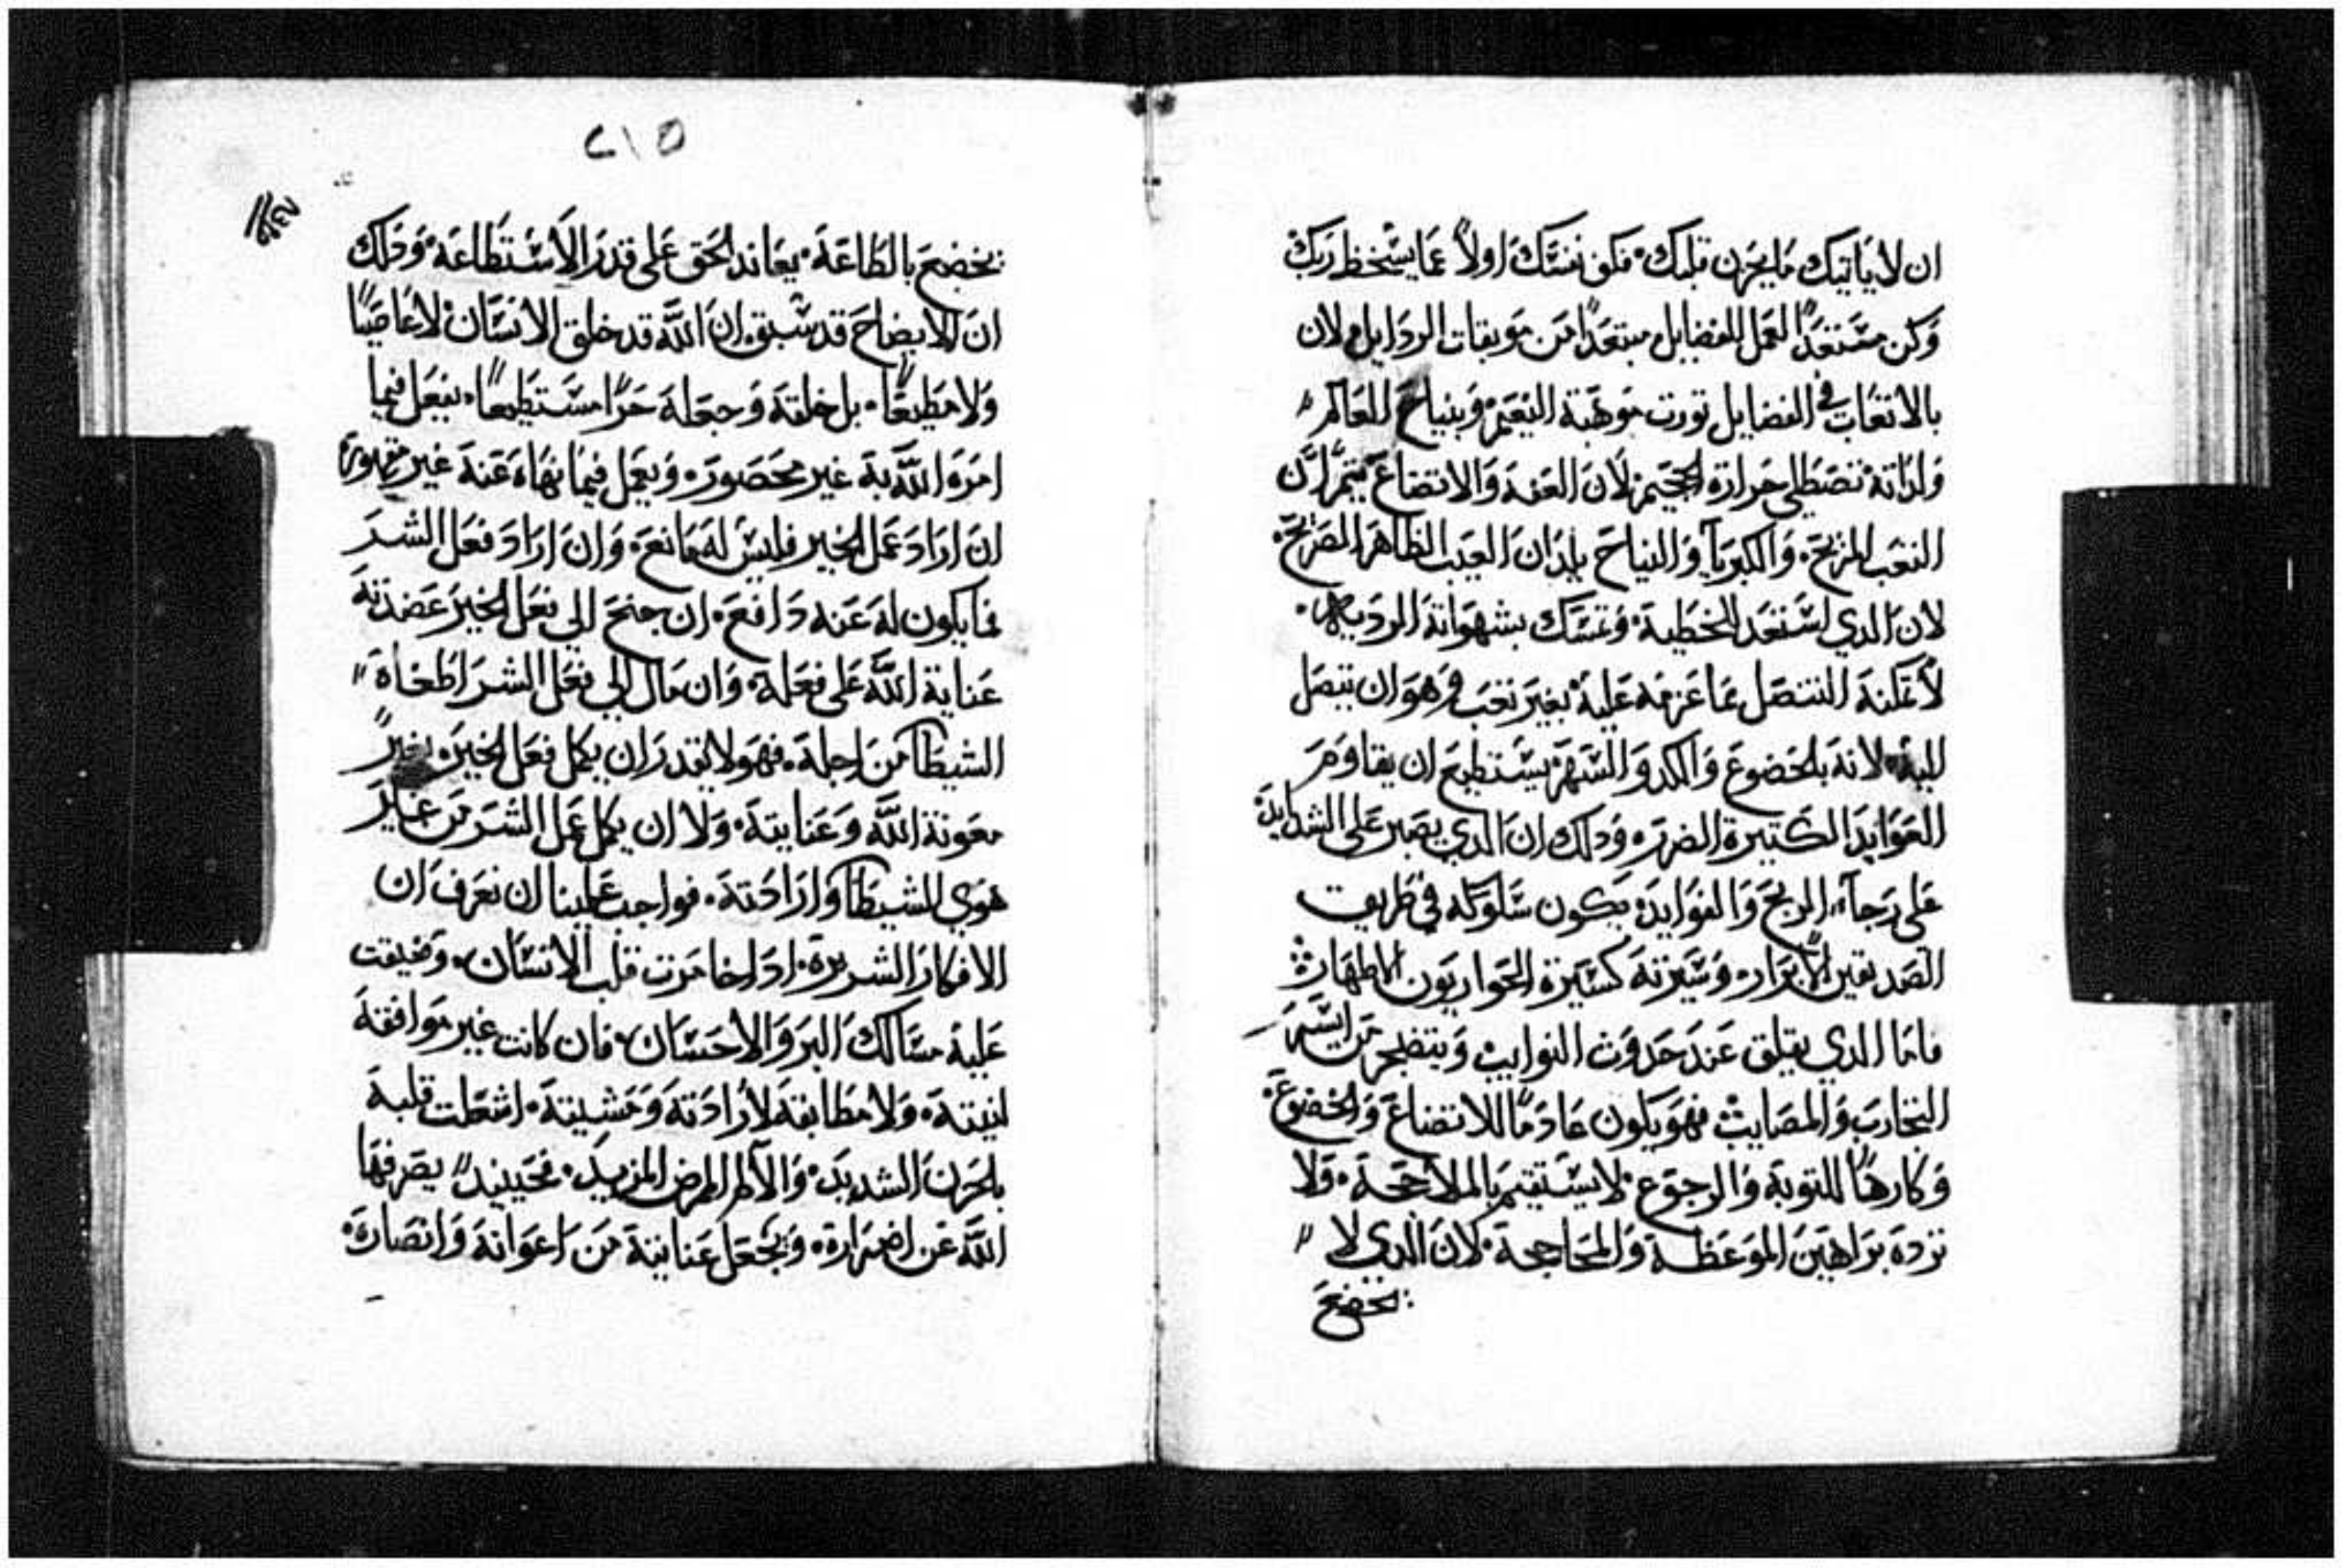 ان لا ياتيك ما يحزن قلبك. فكف نفسك اولاً عما يسخط ربك
وكن مستعدًا لعمل الفضايل مبتعدًا من موبقات الردايل لان
بالاتعاب في الفضايل تورت موهبة النعيم وبنياح العالم
ولداته تصطلي حرارة الجحيم لان العفه والاتضاع يتمران
التعب المربح. والكبريا والنياح يلدان العيب الظاهر الصريح.
لان الدي استعد للخطية. وتمسك بشهواته الرديه.
لا تمكنه التنصل عما عزمه عليه بغير تعب وهوان يتصل
اليه. لانه بالخضوع والكد والسهر يستطيع ان يقاوم
العوايد الكتيرة الضرر. ودلك ان الدي يصبر على الشدايد
على رجآء الربح والفوايد. يكون سلوكه في طريق
الصديقين الابرار. وسيرته كسيرة الحواريون الاطهار
فاما الدي يقلق عند حدوث النوايب ويتضجر من ايسر
التجارب والمصايب فهو يكون عادمًا للاتضاع والخضوع.
وكارهًا للتوبة والرجوع. لا يستقيم بالملاججة. ولا
ترده براهين الموعظة والمحاججة. لان الدي لا
يخضع
٢١٥
يخضع بالطاعة. يعاند الحق على قدر الاستطاعة. ودلك
ان الايضاح قد سبق. ان الله قد خلق الانسان لا عاصيًا
ولا مطيعًا. بل خلقه وجعله حرًا مستطيعًا. يفعل فيما
امره الله به غير محصور. ويعمل فيما نهاه عنه غير مقهور
ان اراد عمل الخير فليس له مانع. وان اراد فعل الشر
فما يكون له عنه دافع. ان جنح الي فعل الخير عضدته
عناية الله على فعله. وان مال الي فعل الشر اطغاه
الشيطا من اجله. فهو لا يقدر ان يكمل فعل الخير بغير
معونة الله وعنايته. ولا ان يكمل عمل الشر من غير
هوي الشيطا وارادته. فواجب علينا ان نعرف ان
الافكار الشريرة. ادا خامرت قلب الانسان. وضيقت
عليه مسالك البر والاحسان. فان كانت غير موافقة
لنيته. ولا مطابقة لارادته ومشيته. اشعلت قلبه
بالحزن الشديد. والالم الممرض المزيد. فحينيد يصرفها
الله عن اضراره. ويجعل عنايته من اعوانه وانصاره.